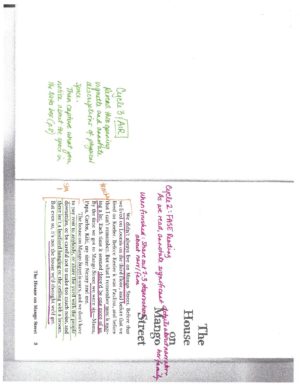 Cycle 3 (AIR)
Reread this opening
vignette and annotate
descriptions of physical
space.
Then capture what you
notice about the space in
the Notes box (p.2)
Cycle 2 - FASE Reading
As we read, annotate significant details about narrator
her family
When finished, share out 2-3 observations
about narr/fam
The
House
on
Mango
Street
We didn't always live on Mango Street. Before that
we lived on Loomis on the third floor, and before that we
lived on Keeler. Before Keeler it was Paulina, and before
that I can't remember. But what I remember most is mov-
ing a lot. Each time it seemed there'd be one more of us.
By the time we got to Mango Street we were six—Mama,
Papa, Carlos, Kiki, my sister Nenny and me.
The house on Mango Street is ours, and we don't have
to pay rent to anybody, or share the yard with the people
downstairs, or be careful not to make too much noise, and
there isn't a landlord banging on the ceiling with a broom.
But even so, it's not the house we'd thought we'd get.
The House on Mango Street
3